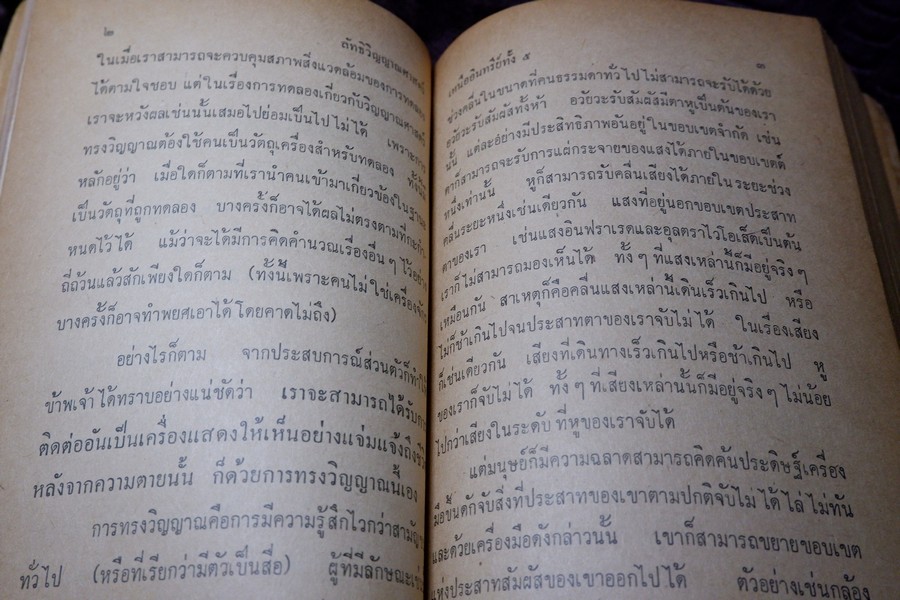 ๒
ลัทธิวิญญาณศาสตร์
ในเมื่อเราสามารถจะควบคุมสภาพสิ่งแวดล้อมของการทดลอง
ได้ตามใจชอบ แต่ในเรื่องการทดลองเกี่ยวกับวิญญาณศาสตร์
เราจะหวังผลเช่นนั้นเสมอไปย่อมเป็นไปไม่ได้ เพราะการ
ทรงวิญญาณต้องใช้คนเป็นวัตถุเครื่องสำหรับทดลอง ทั้งนี้มี
หลักอยู่ว่า เมื่อใดก็ตามที่เรานำคนเข้ามาเกี่ยวข้องในฐานะ
เป็นวัตถุที่ถูกทดลอง บางครั้งก็อาจได้ผลไม่ตรงตามที่กะกำ
หนดไว้ได้ แม้ว่าจะได้มีการคิดคำนวณเรื่องอื่น ๆ ไว้อย่าง
ถี่ถ้วนแล้วสักเพียงใดก็ตาม (ทั้งนี้เพราะคนไม่ใช่เครื่องจักร
บางครั้งก็อาจทำพยศเอาได้โดยคาดไม่ถึง)
อย่างไรก็ตาม จากประสบการณ์ส่วนตัวก็ทำให้
ข้าพเจ้าได้ทราบอย่างแน่ชัดว่า เราจะสามารถได้รับการ
ติดต่ออันเป็นเครื่องแสดงให้เห็นอย่างแจ่มแจ้งถึงชีวิ
หลังจากความตายนั้น ก็ด้วยการทรงวิญญาณนี้เอง
การทรงวิญญาณคือการมีความรู้สึกไวกว่าสามัญ
ทั่วไป (หรือที่เรียกว่ามีตัวเป็นสื่อ) ผู้ที่มีลักษณะเช่น
เหนืออินทรีย์ทั้ง ๕
๓
ช่วงคลื่นในขนาดที่คนธรรมดาทั่วไปไม่สามารถจะรับได้ด้วย
อวัยวะรับสัมผัสทั้งห้า อวัยวะรับสัมผัสมีตาหูเป็นต้นของเรา
นั้น แต่ละอย่างมีประสิทธิภาพอันอยู่ในขอบเขตจำกัด เช่น
ตาก็สามารถจะรับการแผ่กระจายของแสงได้ภายในขอบเขตต์
หนึ่งเท่านั้น หูก็สามารถรับคลื่นเสียงได้ภายในระยะช่วง
คลื่นระยะหนึ่งเช่นเดียวกัน แสงที่อยู่นอกขอบเขตประสาท
ตาของเรา เช่นแสงอินฟราเรดและอุลตราไวโอเล็ตเป็นต้น
เราก็ไม่สามารถมองเห็นได้ ทั้ง ๆ ที่แสงเหล่านี้ก็มีอยู่จริง ๆ
เหมือนกัน สาเหตุก็คือคลื่นแสงเหล่านี้เดินเร็วเกินไป หรือ
ไม่ก็ช้าเกินไปจนประสาทตาของเราจับไม่ได้ ในเรื่องเสียง
ก็เช่นเดียวกัน เสียงที่เดินทางเร็วเกินไปหรือช้าเกินไป หู
ของเราก็จับไม่ได้ ทั้ง ๆ ที่เสียงเหล่านั้นก็มีอยู่จริง ๆ ไม่น้อย
ไปกว่าเสียงในระดับ ที่หูของเราจับได้
แต่มนุษย์ก็มีความฉลาดสามารถคิดค้นประดิษฐ์เครื่อง
มือขึ้นดักจับสิ่งที่ประสาทของเขาตามปกติจับไม่ได้ไล่ไม่ทัน
และด้วยเครื่องมือดังกล่าวนั้น เขาก็สามารถขยายขอบเขต
แห่งประสาทสัมผัสของเขาออกไปได้ ตัวอย่างเช่นกล้อง